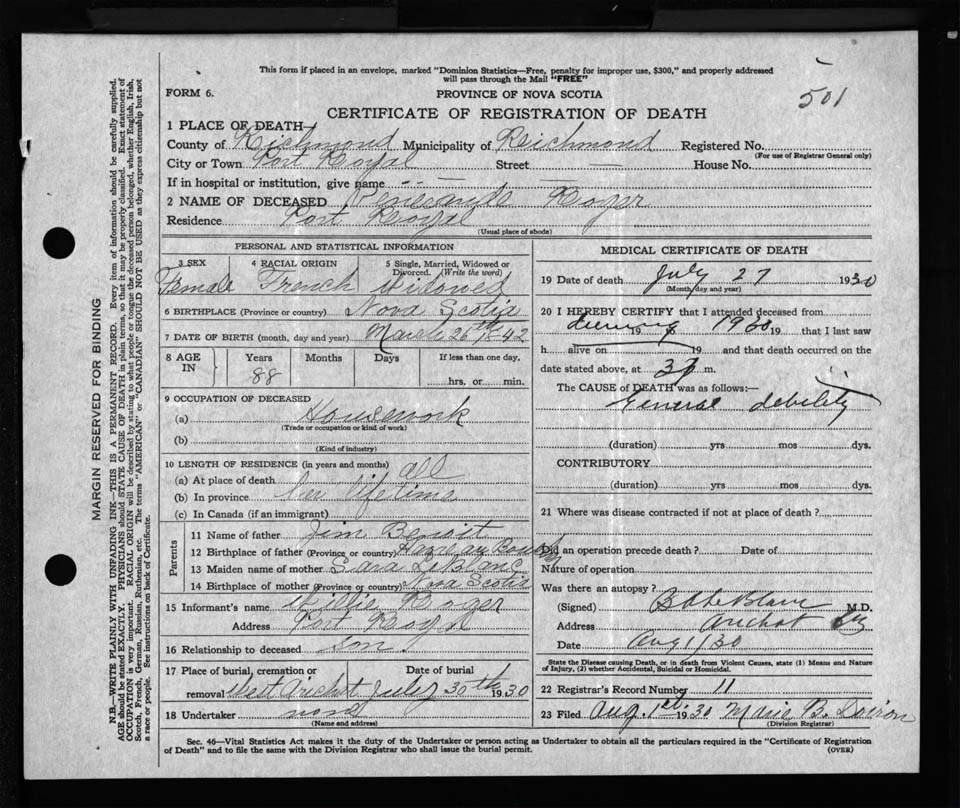 This form if placed in an envelope, marked "Dominion Statistics—Free, penalty for improper use, $300," and properly addressed
will pass through the Mail "FREE"
501
FORM 6.
PROVINCE OF NOVA SCOTIA
CERTIFICATE OF REGISTRATION OF DEATH
1 PLACE OF DEATH—
County of Richmond Municipality of Richmond Registered No.
(For use of Registrar General only)
City or Town Port Royal Street — House No.
If in hospital or institution, give name
2 NAME OF DECEASED Boyer
Residence Port Royal
(Usual place of abode)
PERSONAL AND STATISTICAL INFORMATION
3 SEX 4 RACIAL ORIGIN 5 Single, Married, Widowed or Divorced. (Write the word)
Female French Widowed
6 BIRTHPLACE (Province or country) Nova Scotia
7 DATE OF BIRTH (month, day and year) March 26th 1842
8 AGE IN Years Months Days If less than one day,
88 hrs. or min.
9 OCCUPATION OF DECEASED
(a) Housework
(Trade or occupation or kind of work)
(b)
(Kind of industry)
10 LENGTH OF RESIDENCE (in years and months)
(a) At place of death all
(b) In province her lifetime
(c) In Canada (if an immigrant)
Parents
11 Name of father Jim Benoit
12 Birthplace of father (Province or country)
13 Maiden name of mother Sara LeBlanc
14 Birthplace of mother (Province or country) Nova Scotia
15 Informant's name Boyer
Address Port Royal
16 Relationship to deceased son
17 Place of burial, cremation or removal West Arichat Date of burial July 30th 1930
18 Undertaker none
(Name and address)
MEDICAL CERTIFICATE OF DEATH
19 Date of death July 27 1930
(Month, day and year)
20 I HEREBY CERTIFY that I attended deceased from
during 19 1930 19 that I last saw
h alive on 19 and that death occurred on the
date stated above, at 3 m.
The CAUSE of DEATH was as follows:—
General debility
(duration) yrs mos dys.
CONTRIBUTORY
(duration) yrs mos dys.
21 Where was disease contracted if not at place of death?
Did an operation precede death? Date of
Nature of operation
Was there an autopsy?
(Signed) LeBlanc M.D.
Address Arichat
Date Aug 1/30
State the Disease causing Death, or in death from Violent Causes, state (1) Means and Nature
of Injury, (2) whether Accidental, Suicidal or Homicidal.
22 Registrar's Record Number 11
23 Filed Aug. 1st 1930 Marie B. Doiron
(Division Registrar)
Sec. 46—Vital Statistics Act makes it the duty of the Undertaker or person acting as Undertaker to obtain all the particulars required in the "Certificate of Registration
of Death" and to file the same with the Division Registrar who shall issue the burial permit. (OVER)
MARGIN RESERVED FOR BINDING
N.B.—WRITE PLAINLY WITH UNFADING INK—THIS IS A PERMANENT RECORD. Every item of information should be carefully supplied.
AGE should be stated EXACTLY. PHYSICIANS should STATE CAUSE OF DEATH in plain terms, so that it may be properly classified. Exact statement of
OCCUPATION is very important. RACIAL ORIGIN will be described by stating to what people or tongue the deceased person belonged, whether English, Irish,
Scotch, French, German, Russian, Ruthenian, etc. The terms "AMERICAN" or "CANADIAN" SHOULD NOT BE USED as they express citizenship but not
a race or people. See instructions on back of Certificate.